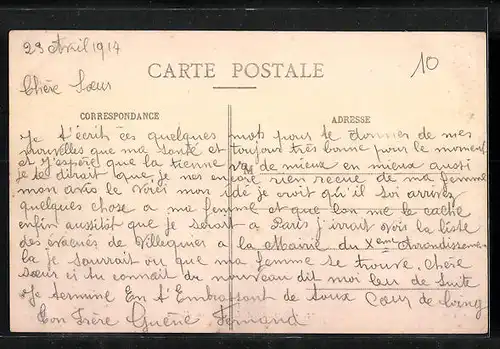 23 Avril 1917
10
Chère Sœur
CARTE POSTALE
CORRESPONDANCE
ADRESSE
Je t'écrit ces quelques mots pour te donner de mes
nouvelles que ma santé et toujours très bonne pour le moment
et J'espère que la tienne va de mieux en mieux austi
M
je te dirait que je nes encore rien recue de ma femme
mon avoc le voici mon idé je croit qu'il soi arrivez
quelques chose a ma femme et que l'on me le cache
enfin aussitôt que je serait a Paris j'irrait voir la liste
des évacués de Villequier a la Mairie du Xème Arrondissement
la je sourrait ou que ma femme se trouve. chère
sœur si tu connait du nouveau dit moi leu de suite
Je termine En t'Embrassant de toux Cœur de loing
Ton Frère Guéné Fernand